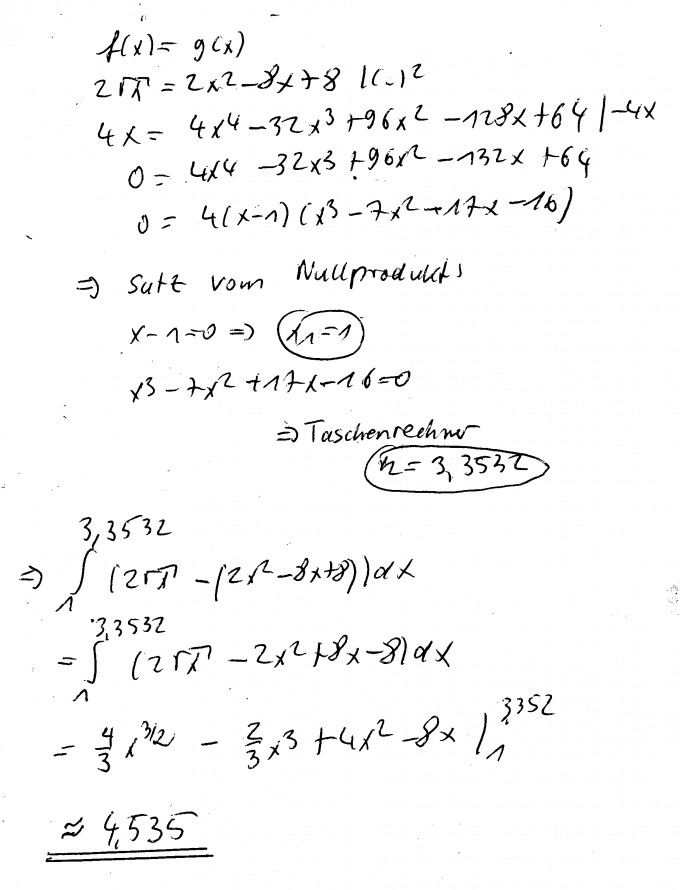 f(x) = g(x)
2√x = 2x² - 8x + 8 |(..)²
4x = 4x⁴ - 32x³ + 96x² - 128x + 64 | -4x
0 = 4x⁴ - 32x³ + 96x² - 132x + 64
0 = 4(x-1)(x³ - 7x² + 17x - 16)
⇒ Satz vom Nullprodukts
x - 1 = 0 ⇒ x₁ = 1
x³ - 7x² + 17x - 16 = 0
⇒ Taschenrechner
x₂ = 3,3532
3,3532
⇒ ∫ (2√x - (2x² - 8x + 8)) dx
1
3,3532
= ∫ (2√x - 2x² + 8x - 8) dx
1
= 4/3 x^3/2 - 2/3 x³ + 4x² - 8x |₁^3,352
≈ 4,535